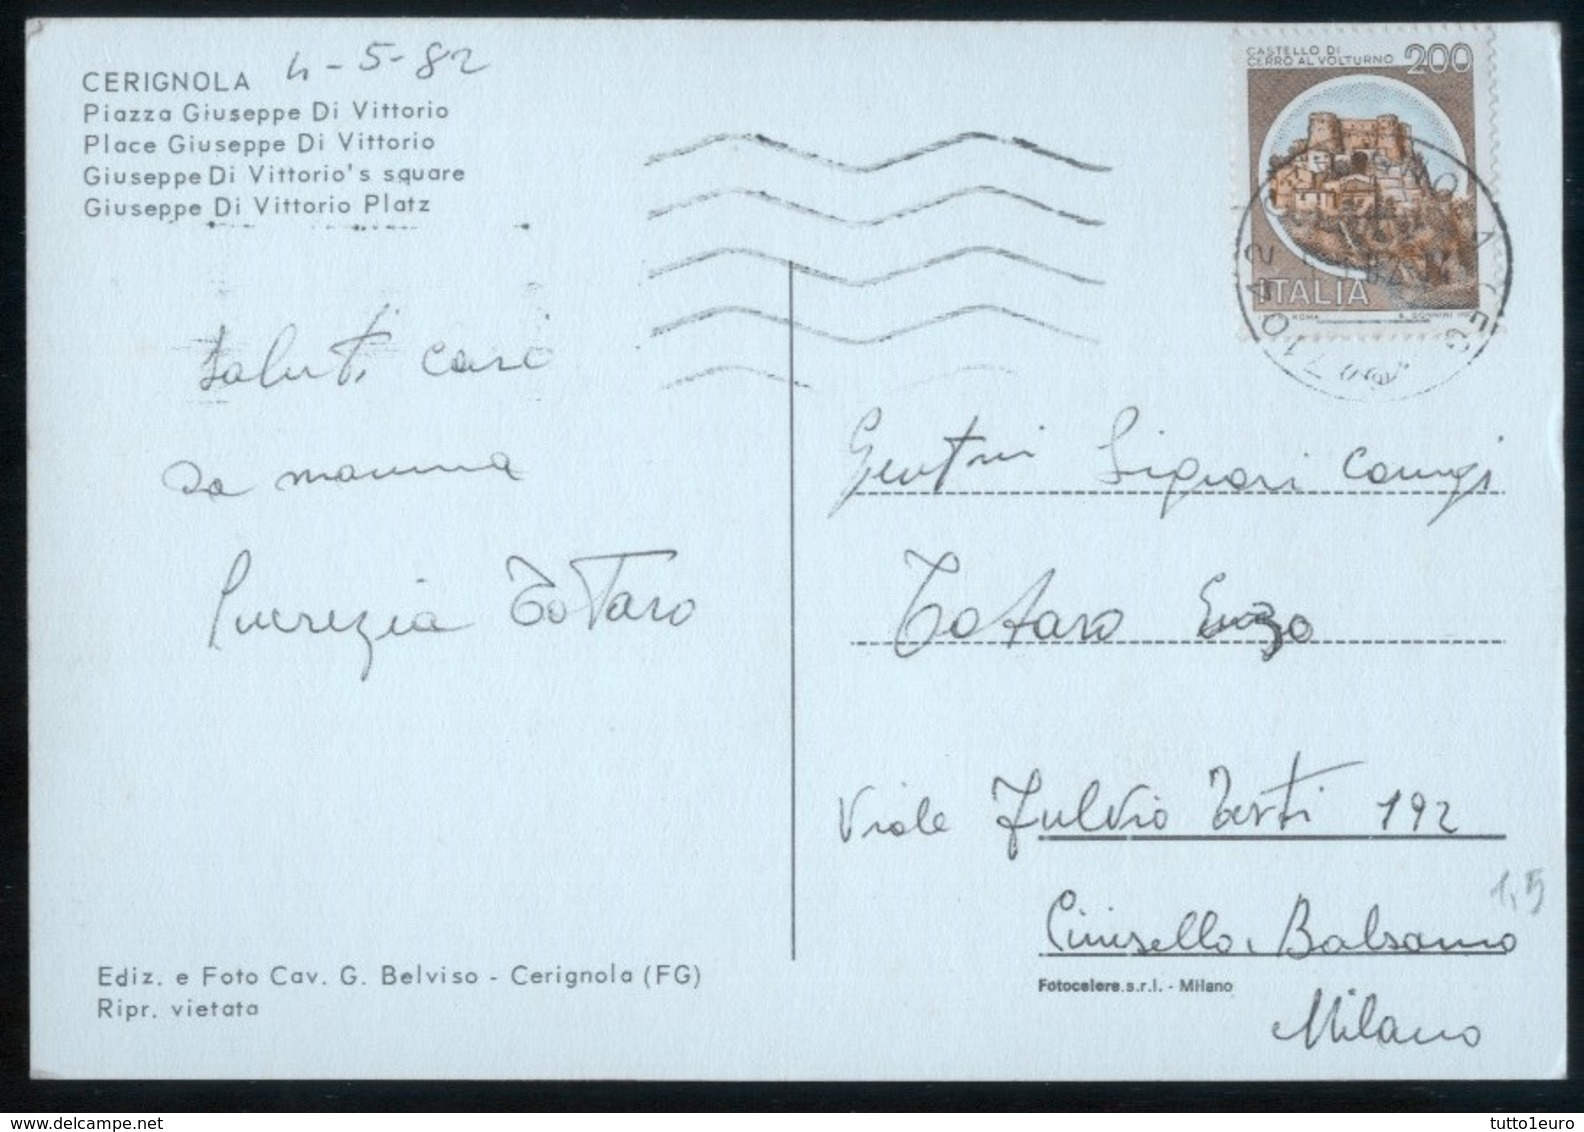 CERIGNOLA 4-5-82
Piazza Giuseppe Di Vittorio
Place Giuseppe Di Vittorio
Giuseppe Di Vittorio's square
Giuseppe Di Vittorio Platz
CASTELLO DI
CERRO AL VOLTURNO 200
ITALIA
ROMA
Saluti cari
da mamma
Lucrezia Totaro
Signori Coniugi
Totaro Enzo
Viale Fulvio Testi 192
1,5
Cinisello Balsamo
Milano
Ediz. e Foto Cav. G. Belviso - Cerignola (FG)
Ripr. vietata
Fotocelere s.r.l. - Milano
tutto1euro